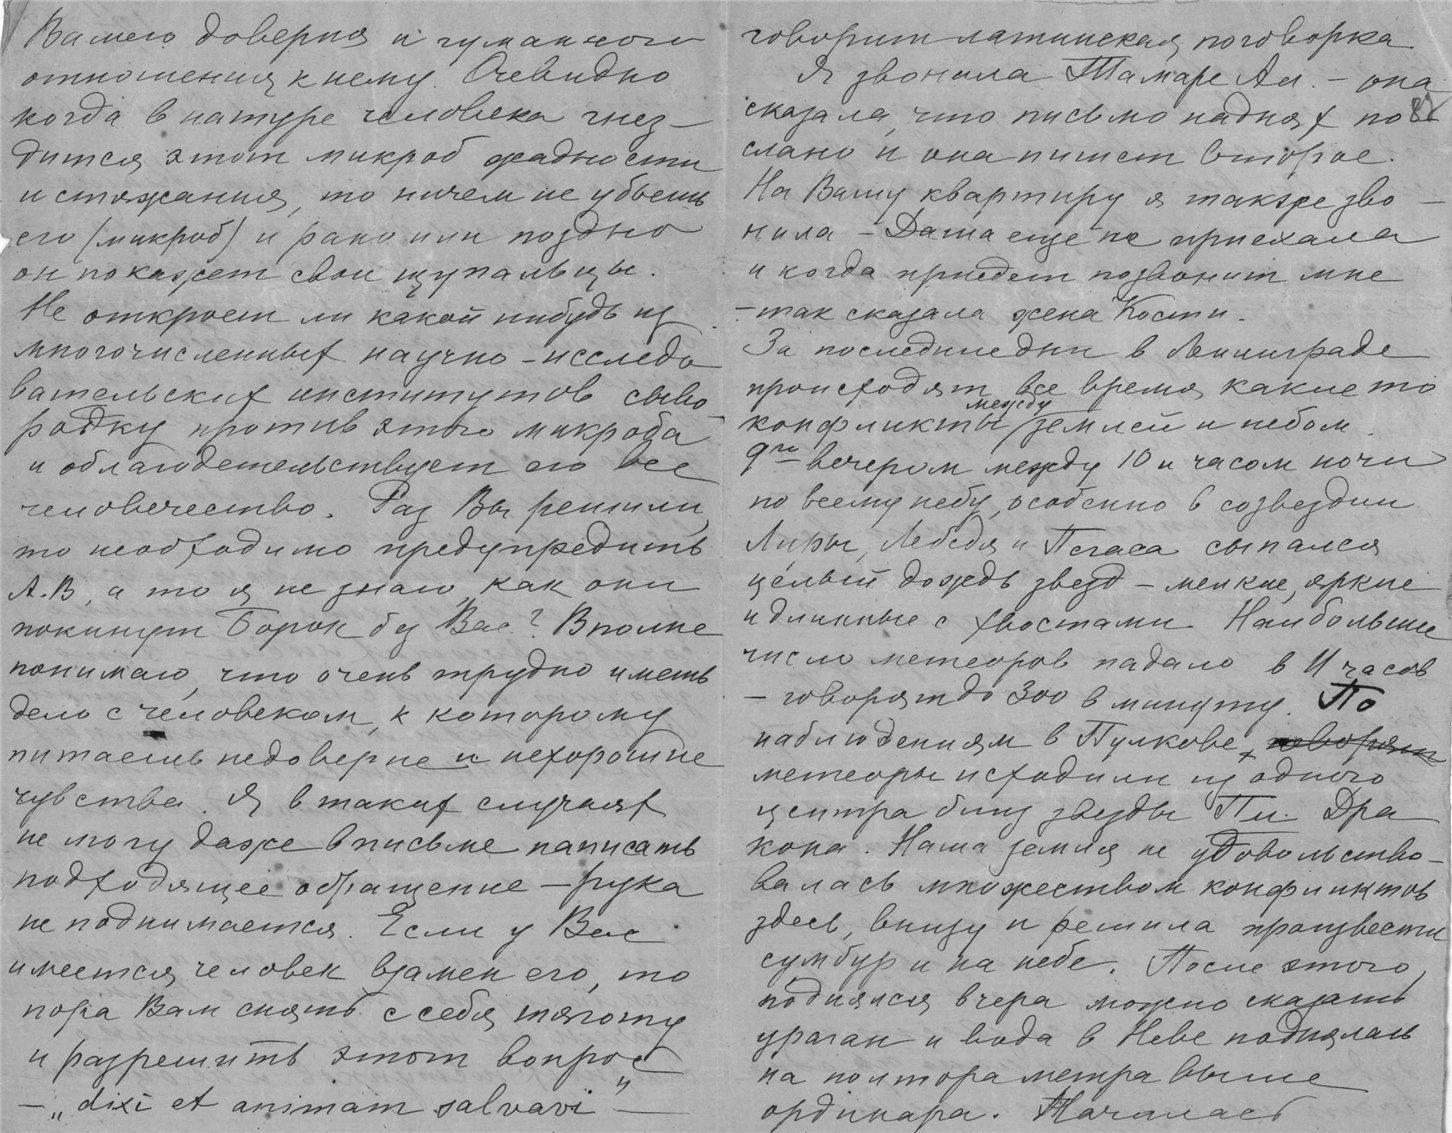 Вашего доверия и гуманного
отношения к нему. Очевидно
когда в натуре человека гнез-
дится этот микроб жадности
и стяжания, то ничем не убьешь
его (микроб) и рано или поздно
он покажет свои щупальцы.
Не откроет ли какой нибудь из
многочисленных научно-исследо
вательских институтов сыво
ротку против этого микроба
и облагодетельствует его все
человечество. Раз Вы решили,
то необходимо предупредить
А.В, а то я не знаю как они
покинут Борок без Вас? Вполне
понимаю, что очень трудно иметь
дело с человеком, к которому
питаешь недоверие и нехорошие
чувства. Я в таких случаях
не могу даже в письме написать
подходящее обращение – рука
не поднимается. Если у Вас
имеется человек взамен его, то
пора Вам снять с себя тяготу
и разрешить этот вопрос
– „dixi et animam salvavi" –
говорит латинская поговорка
Я звонила Тамаре Ал. – она
сказала, что письмо на днях по
82
слано и она пишет второе.
На Вашу квартиру я также зво –
нила – Даша еще не приехала
и когда приедет позвонит мне
– так сказала жена Кости.
За последние дни в Ленинграде
происходят все время какие то
конфликты между землей и небом.
9го вечером между 10 и часом ночи
по всему небу, особенно в созвездии
Лиры, Лебедя и Пегаса сыпался
целый дождь звезд – мелкие, яркие
и длинные с хвостами. Наибольшее
число метеоров падало в 11 часов
– говорят до 300 в минуту. По
наблюдениям в Пулкове, говорят
метеоры исходили из одного
центра близ звезды Пи. Дра
кона. Наша земля не удовольство-
валась множеством конфликтов
здесь, внизу и решила произвести
сумбур и на небе. После этого,
поднялся вчера можно сказать
ураган и вода в Неве поднялась
на полтора метра выше
ординара. Началась